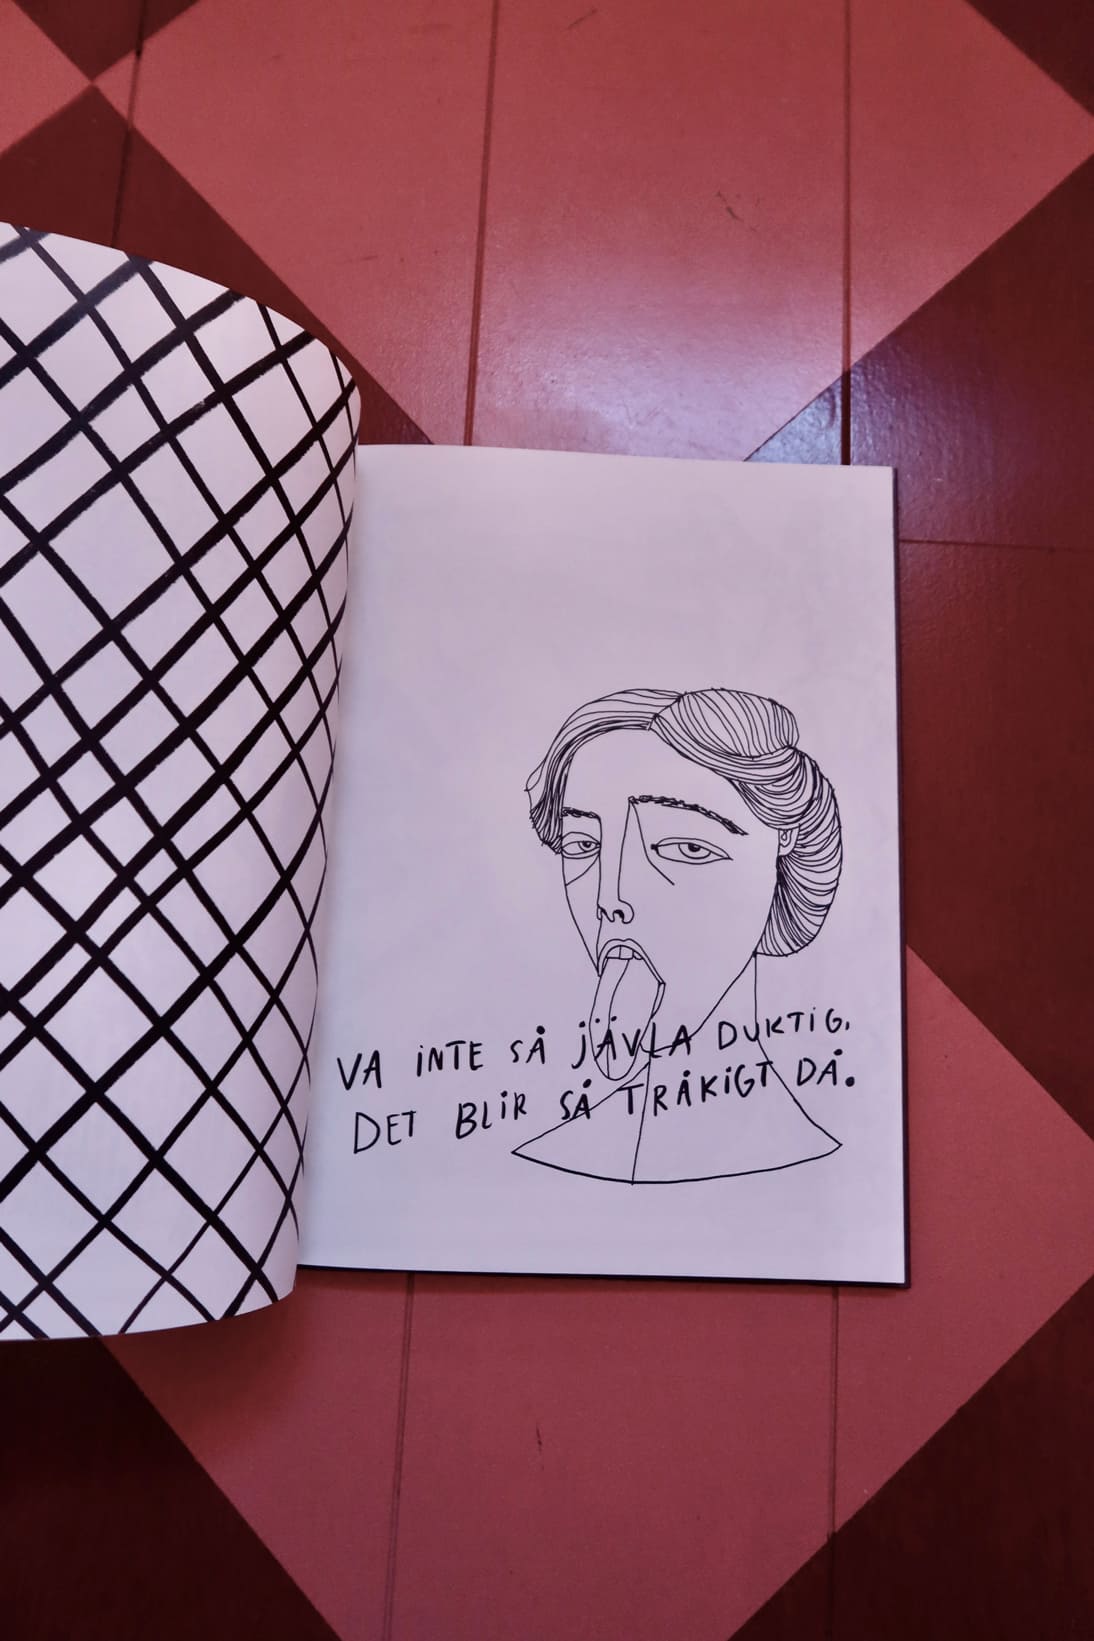 VA iNTE SÅ jÄVLA DUKTiG,
DET BLiR SÅ TRÅKiGT DÅ.